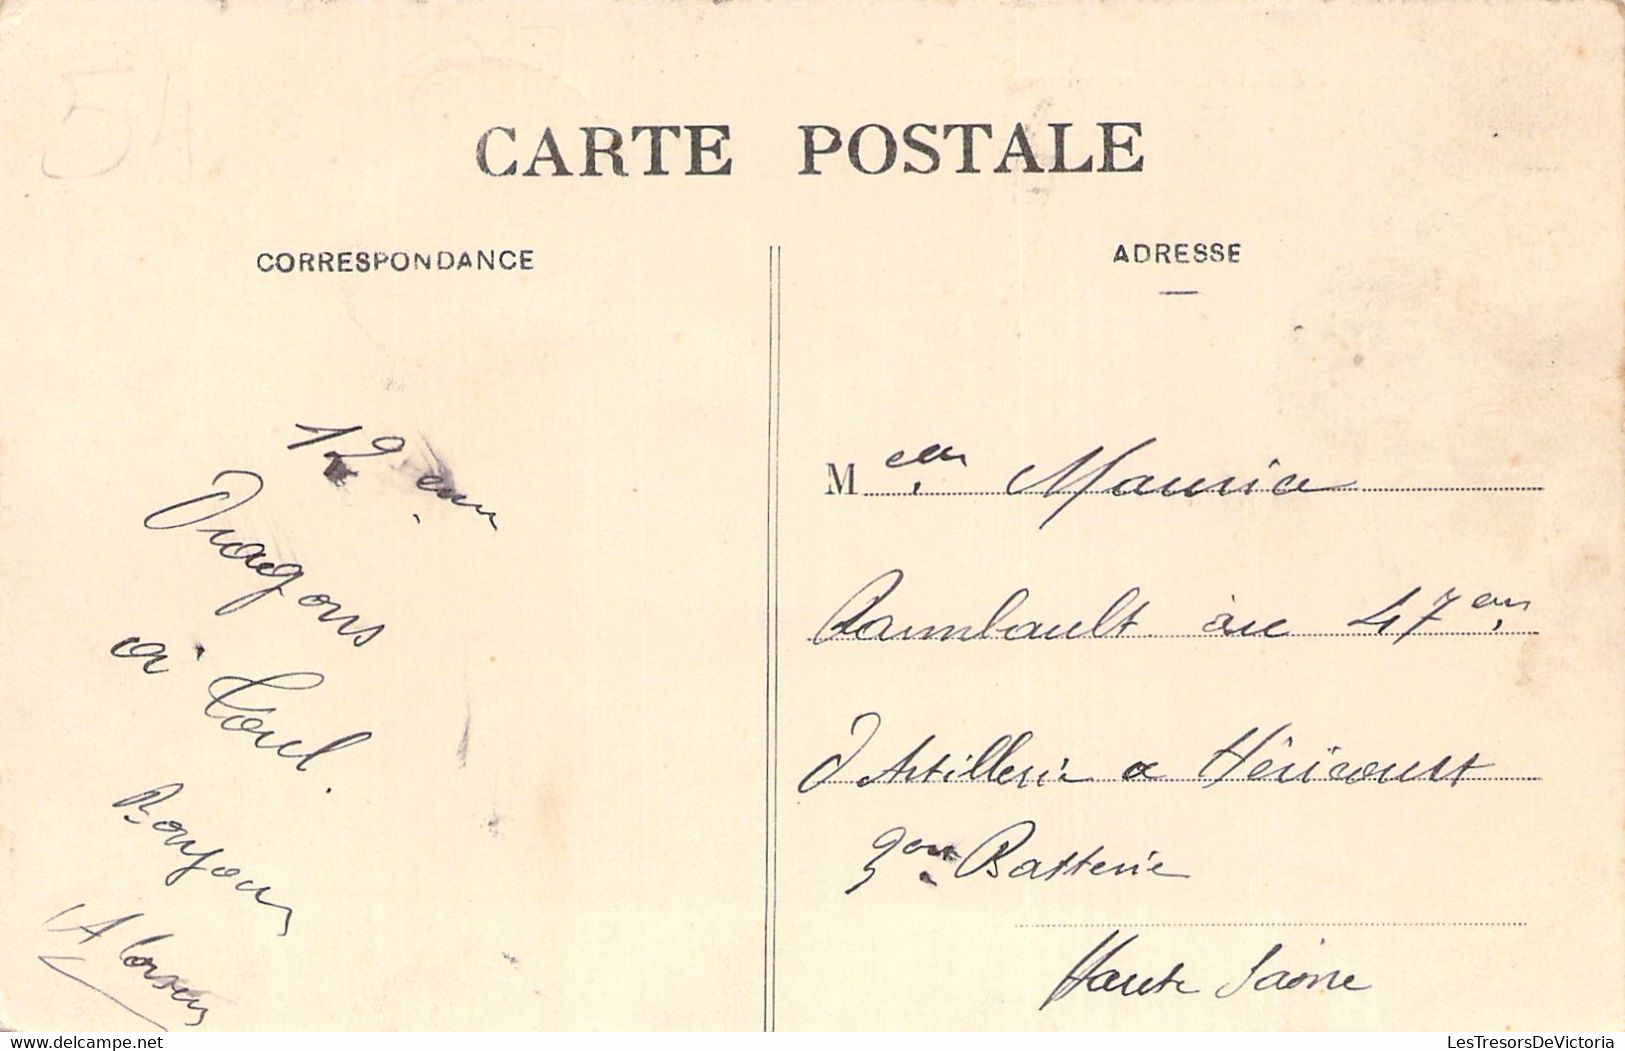 54
CARTE POSTALE
CORRESPONDANCE
ADRESSE
12 em
Dragons
à Toul.
Bonjour
A
M Maurice
Rambault au 47em
d'Artillerie a Héricourt
9em Batterie
Haute Saône
delcampe.net
LesTresorsDeVictoria